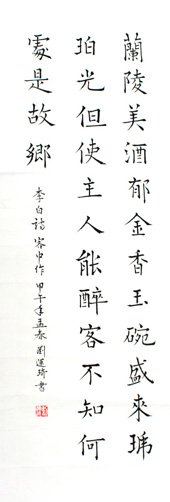 蘭陵美酒郁金香玉碗盛來琥
珀光但使主人能醉客不知何
處是故鄉
李白詩客中作甲午年孟春劉運琦書